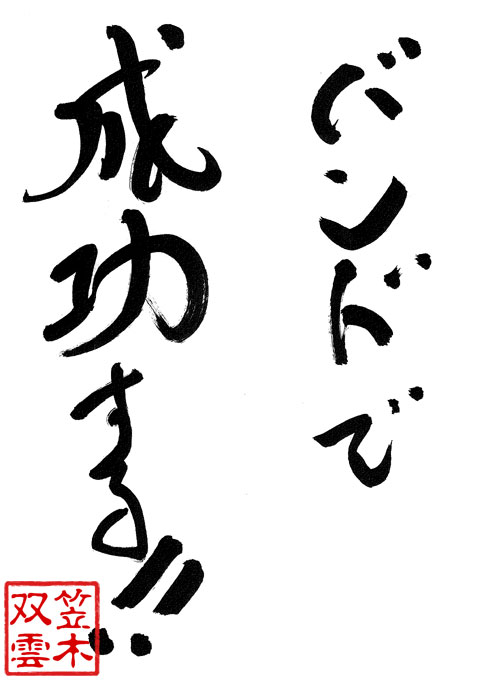 バンドで
成功する!!
笠木
双雲